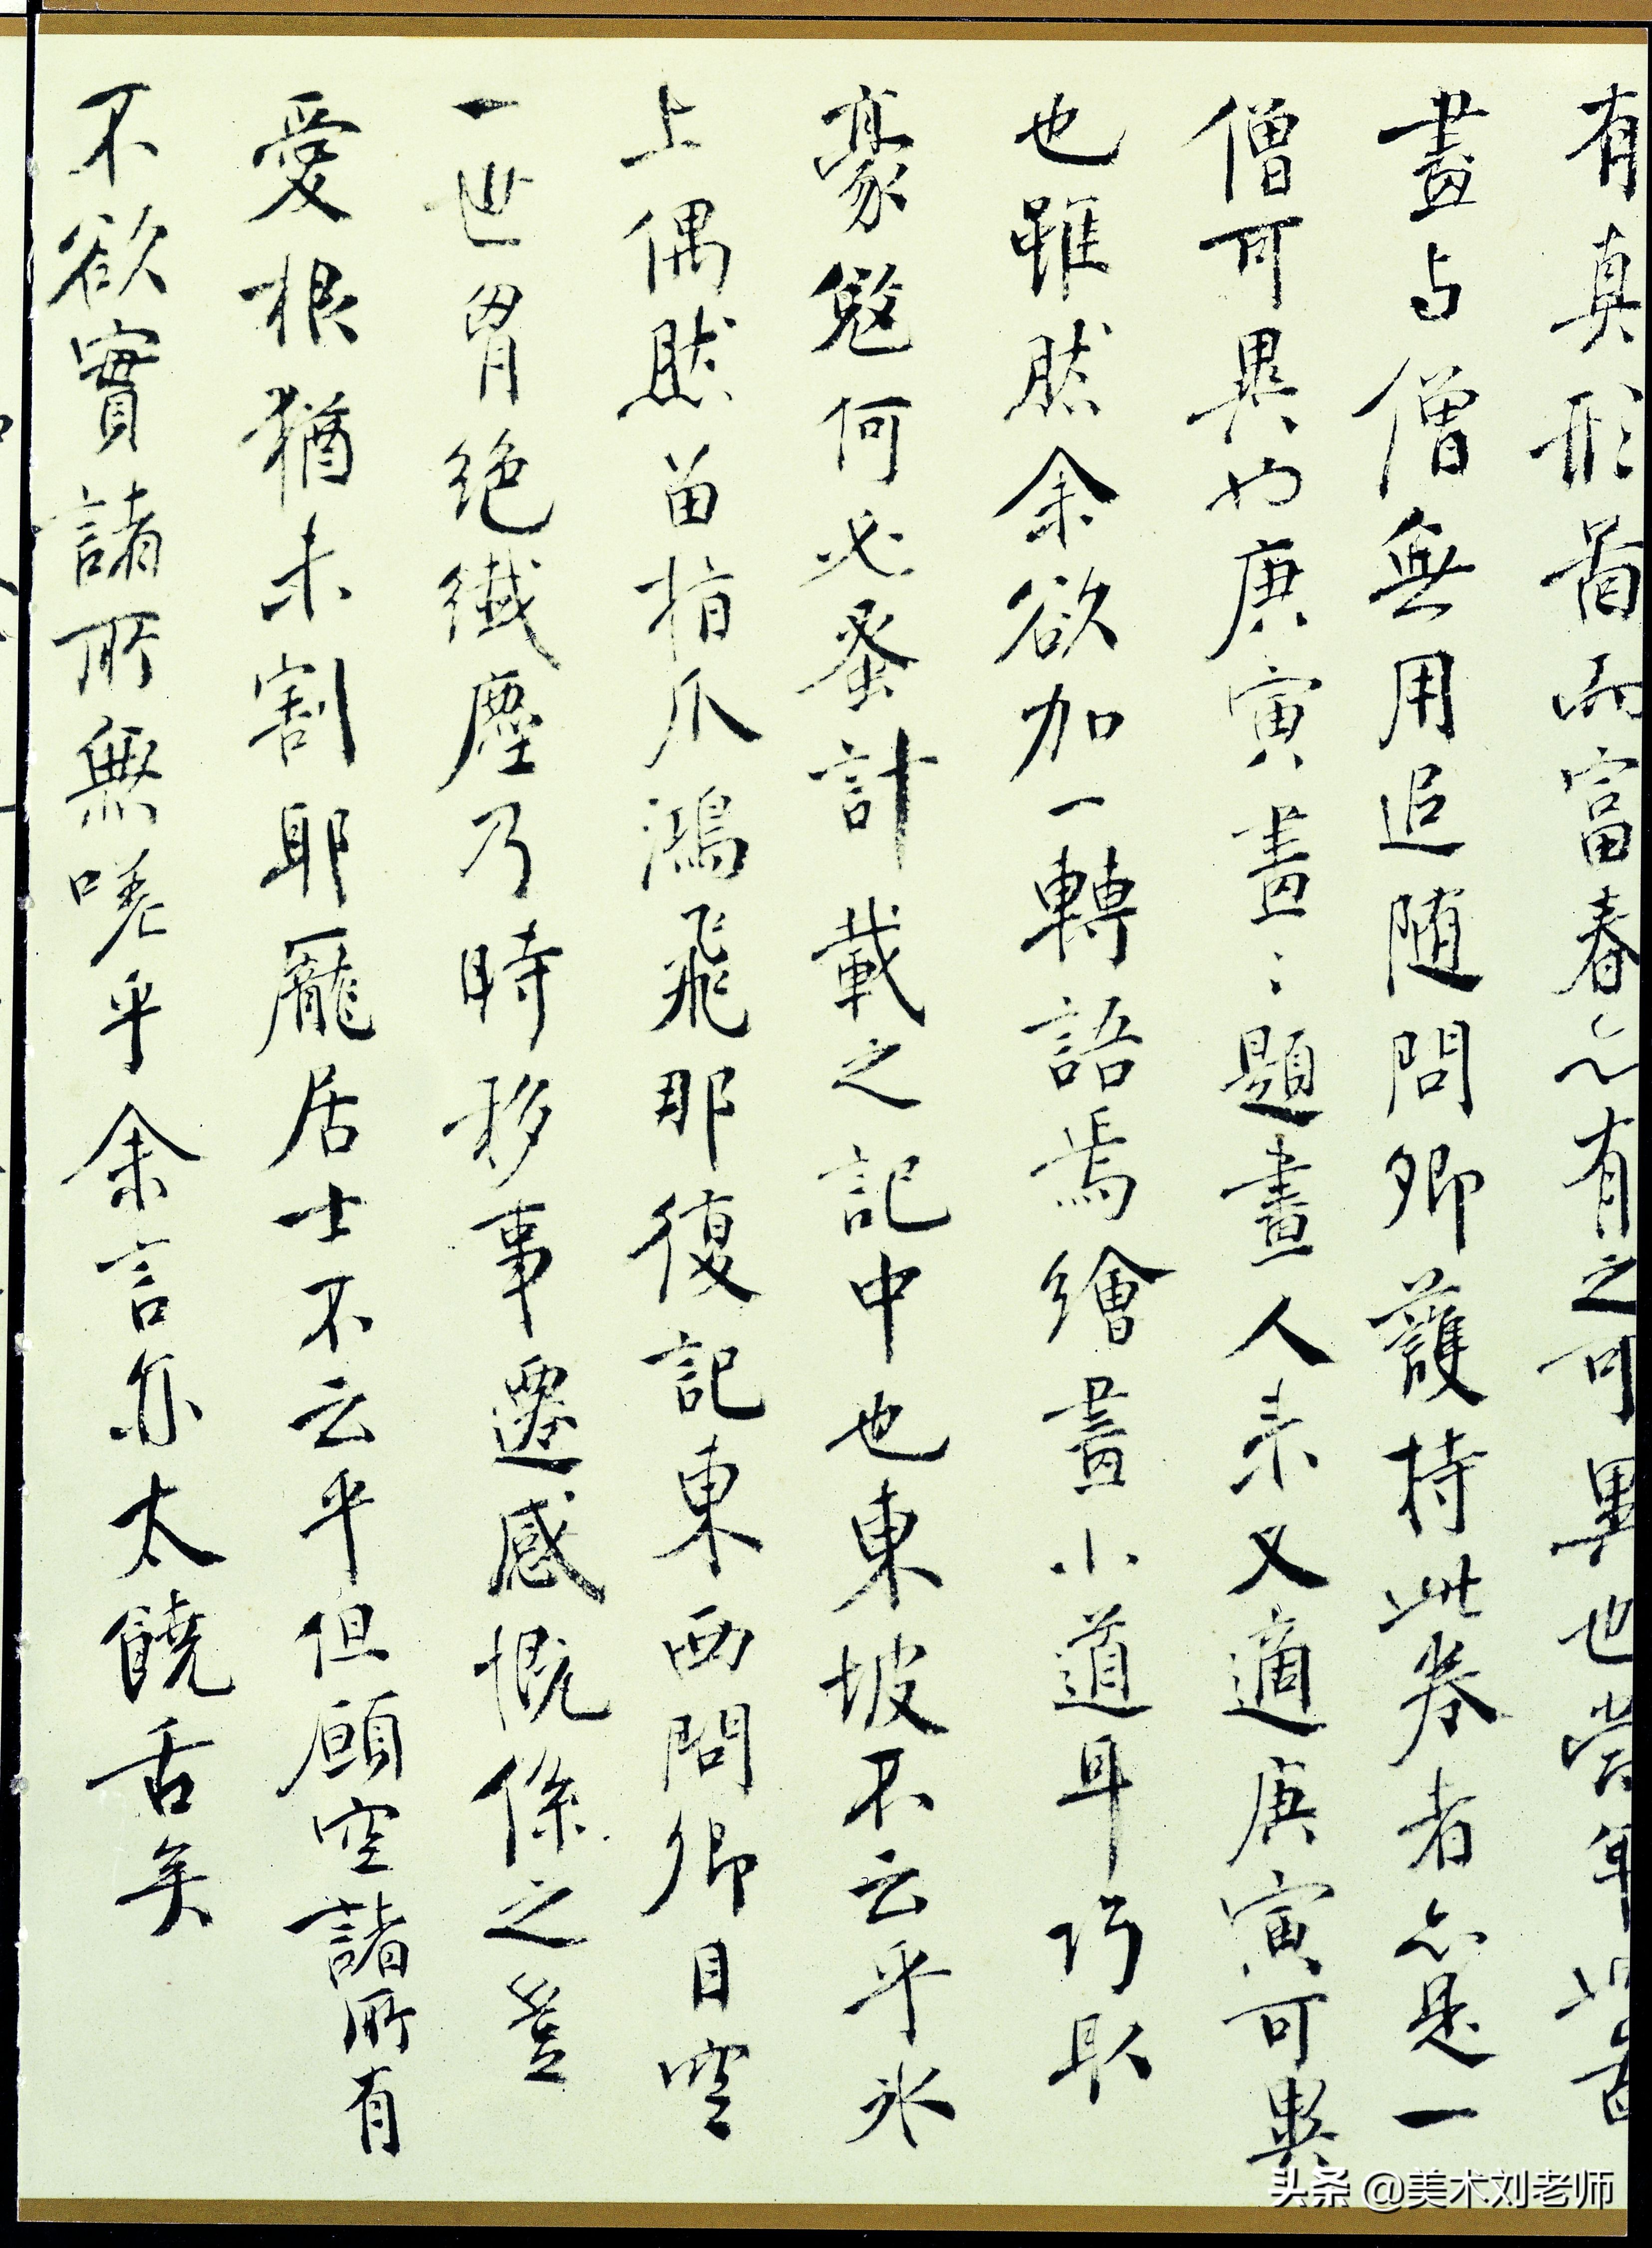 有真形啚而富春亦有之可異也當年此啚
畫与僧無用追随問卿護持此卷者亦是一
僧可異也庚寅畫〻題畫人来又適庚寅可異
也雖然余欲加一轉語焉繪畫小道耳巧取
豪奪何必蚤計載之記中也東坡不云乎氷
上偶然留指爪鴻飛那復記東西問卿目空
一世胷絶纖塵乃時移事遷感慨係之豈
愛根猶未割耶龐居士不云乎但願空諸所有
不欲實諸所無嗟乎余言亦太饒舌矣
头条 @美术刘老师